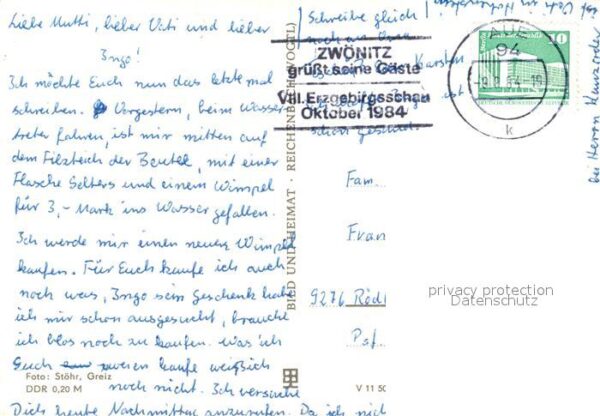 Liebe Mutti, lieber Vati und lieber
Ingo!
Ich möchte Euch nun das letzte mal
schreiben. Vorgestern, beim Wasser-
treter fahren, ist mir mitten auf
dem Filzteich der Beutel, mit einer
Flasche Selters und einem Wimpel
für 3,- Mark ins Wasser gefallen.
Ich werde mir einen neuen Wimpel
kaufen. Für Euch kaufe ich auch
noch was, Ingo sein Geschenk habe
ich mir schon ausgesucht, brauche
ich blos noch zu kaufen. Was ich
Euch zweien kaufe weiß ich
noch nicht. Ich versuche
Dich heute Nachmittag anzurufen. Da ich nich
Foto: Stöhr, Greiz
DDR 0,20 M
BILD UND HEIMAT · REICHENBACH (VOGTL)
V 11 50
Schreibe gleich
noch an
Karsten
ist
schon
ZWÖNITZ
grüßt seine Gäste
VIII. Erzgebirgsschau
Oktober 1984
AUE
94
k
10
Fam.
Fran
9276 Rödl
Psf.
bei Herrn
privacy protection
Datenschutz